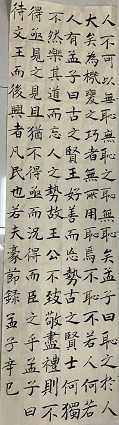 人不可以無恥無恥之無恥矣孟子曰恥之於人
大矣為機變之巧者無所用恥焉不恥不若人何若
人有孟子曰古之賢王好善而忘勢古之賢士何獨
不然樂其道而忘人之勢故王公不致敬盡禮則不
得亟見之見且猶不得亟而況得而臣之乎孟子曰
待文王而後興者凡民也若夫豪節錄孟子辛巳